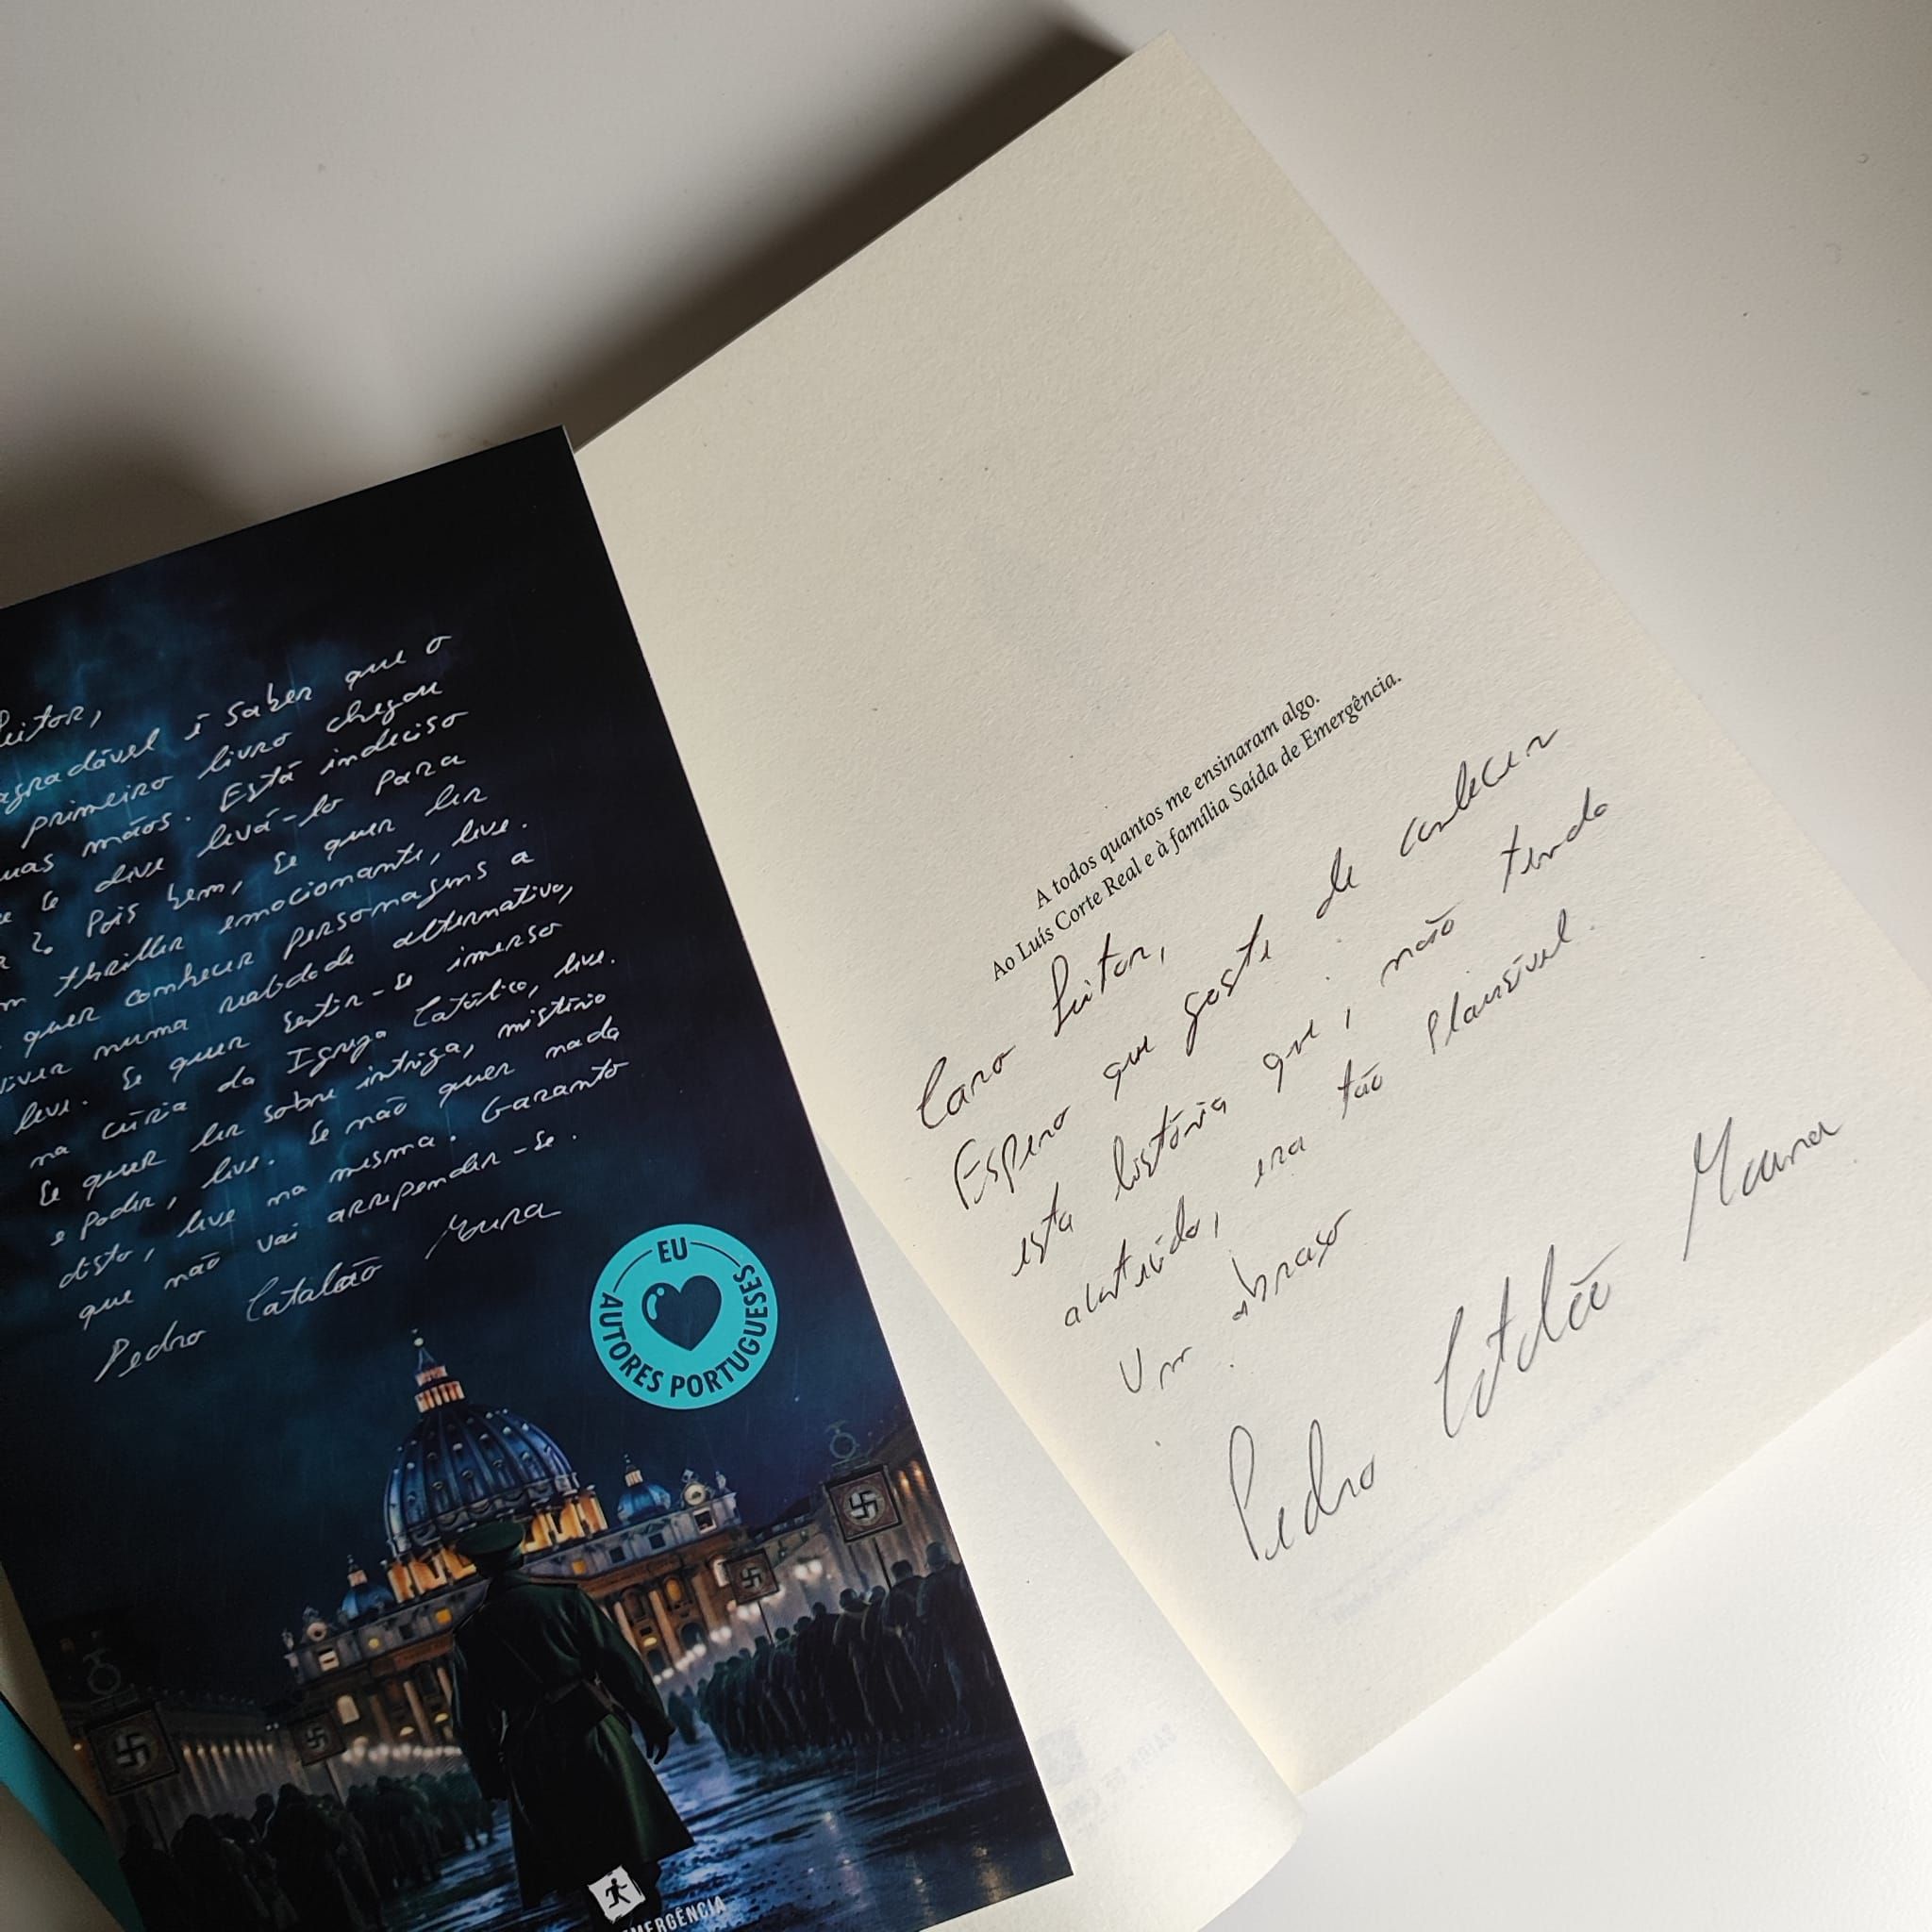 leitor,
agradável é saber que o
primeiro livro chegou
suas mãos. Está indeciso
se o deve levá-lo para
Pois bem, se quer ler
thriller emocionante, leve.
quer conhecer personagens a
viver numa realidade alternativa,
leve. Se quer sentir-se imerso
na cúria da Igreja Católica, leve.
Se quer ler sobre intriga, mistério
e poder, leve. Se não quer nada
disto, leve na mesma. Garanto
que não vai arrepender-se.
Pedro Catalão Moura
EU
AUTORES PORTUGUESES
EMERGÊNCIA
A todos quantos me ensinaram algo.
Ao Luís Corte Real e à família Saída de Emergência.
Caro leitor,
Espero que goste de conhecer
esta história que, não tendo
acontecido, era tão plausível.
Um abraço
Pedro Catalão Moura